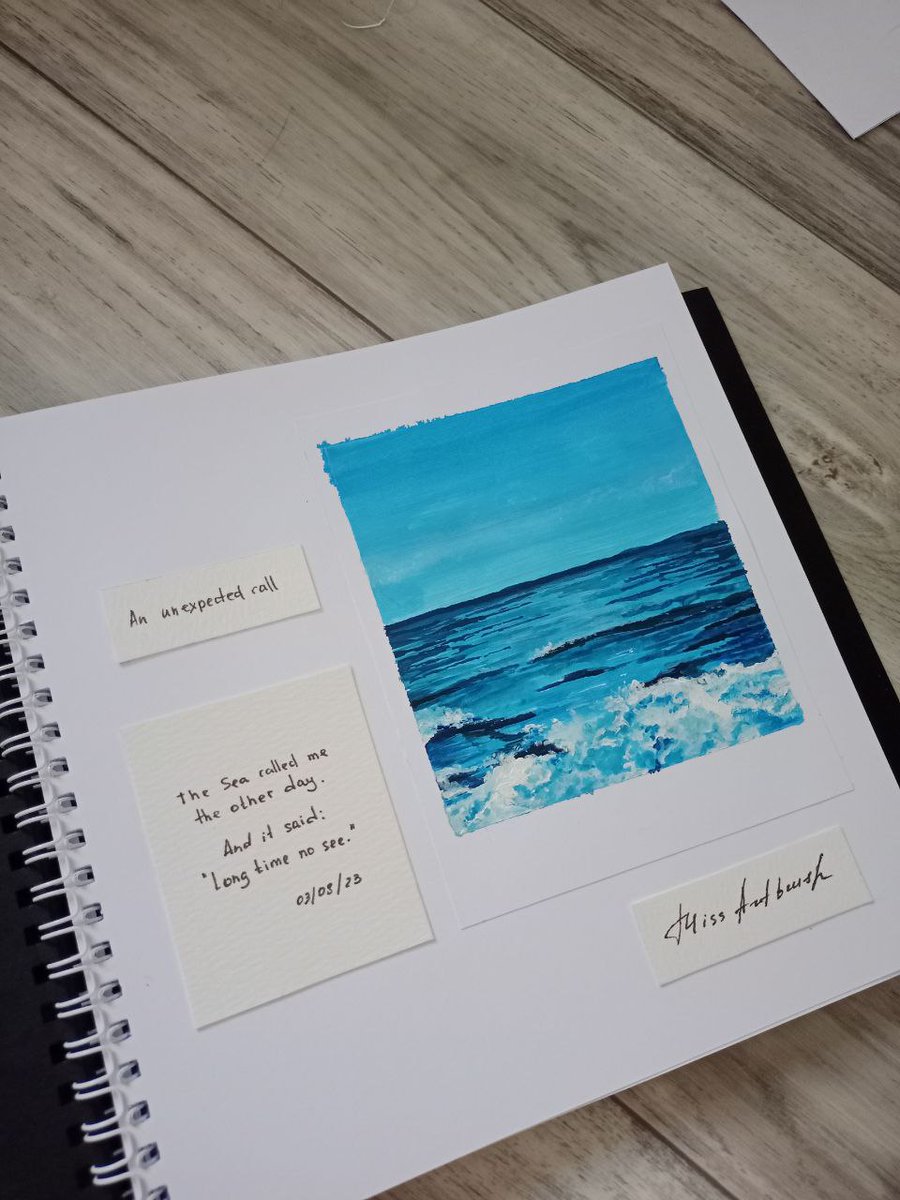 An unexpected call
the Sea called me
the other day.
And it said:
"Long time no see."
03/08/23
Miss Artbrush